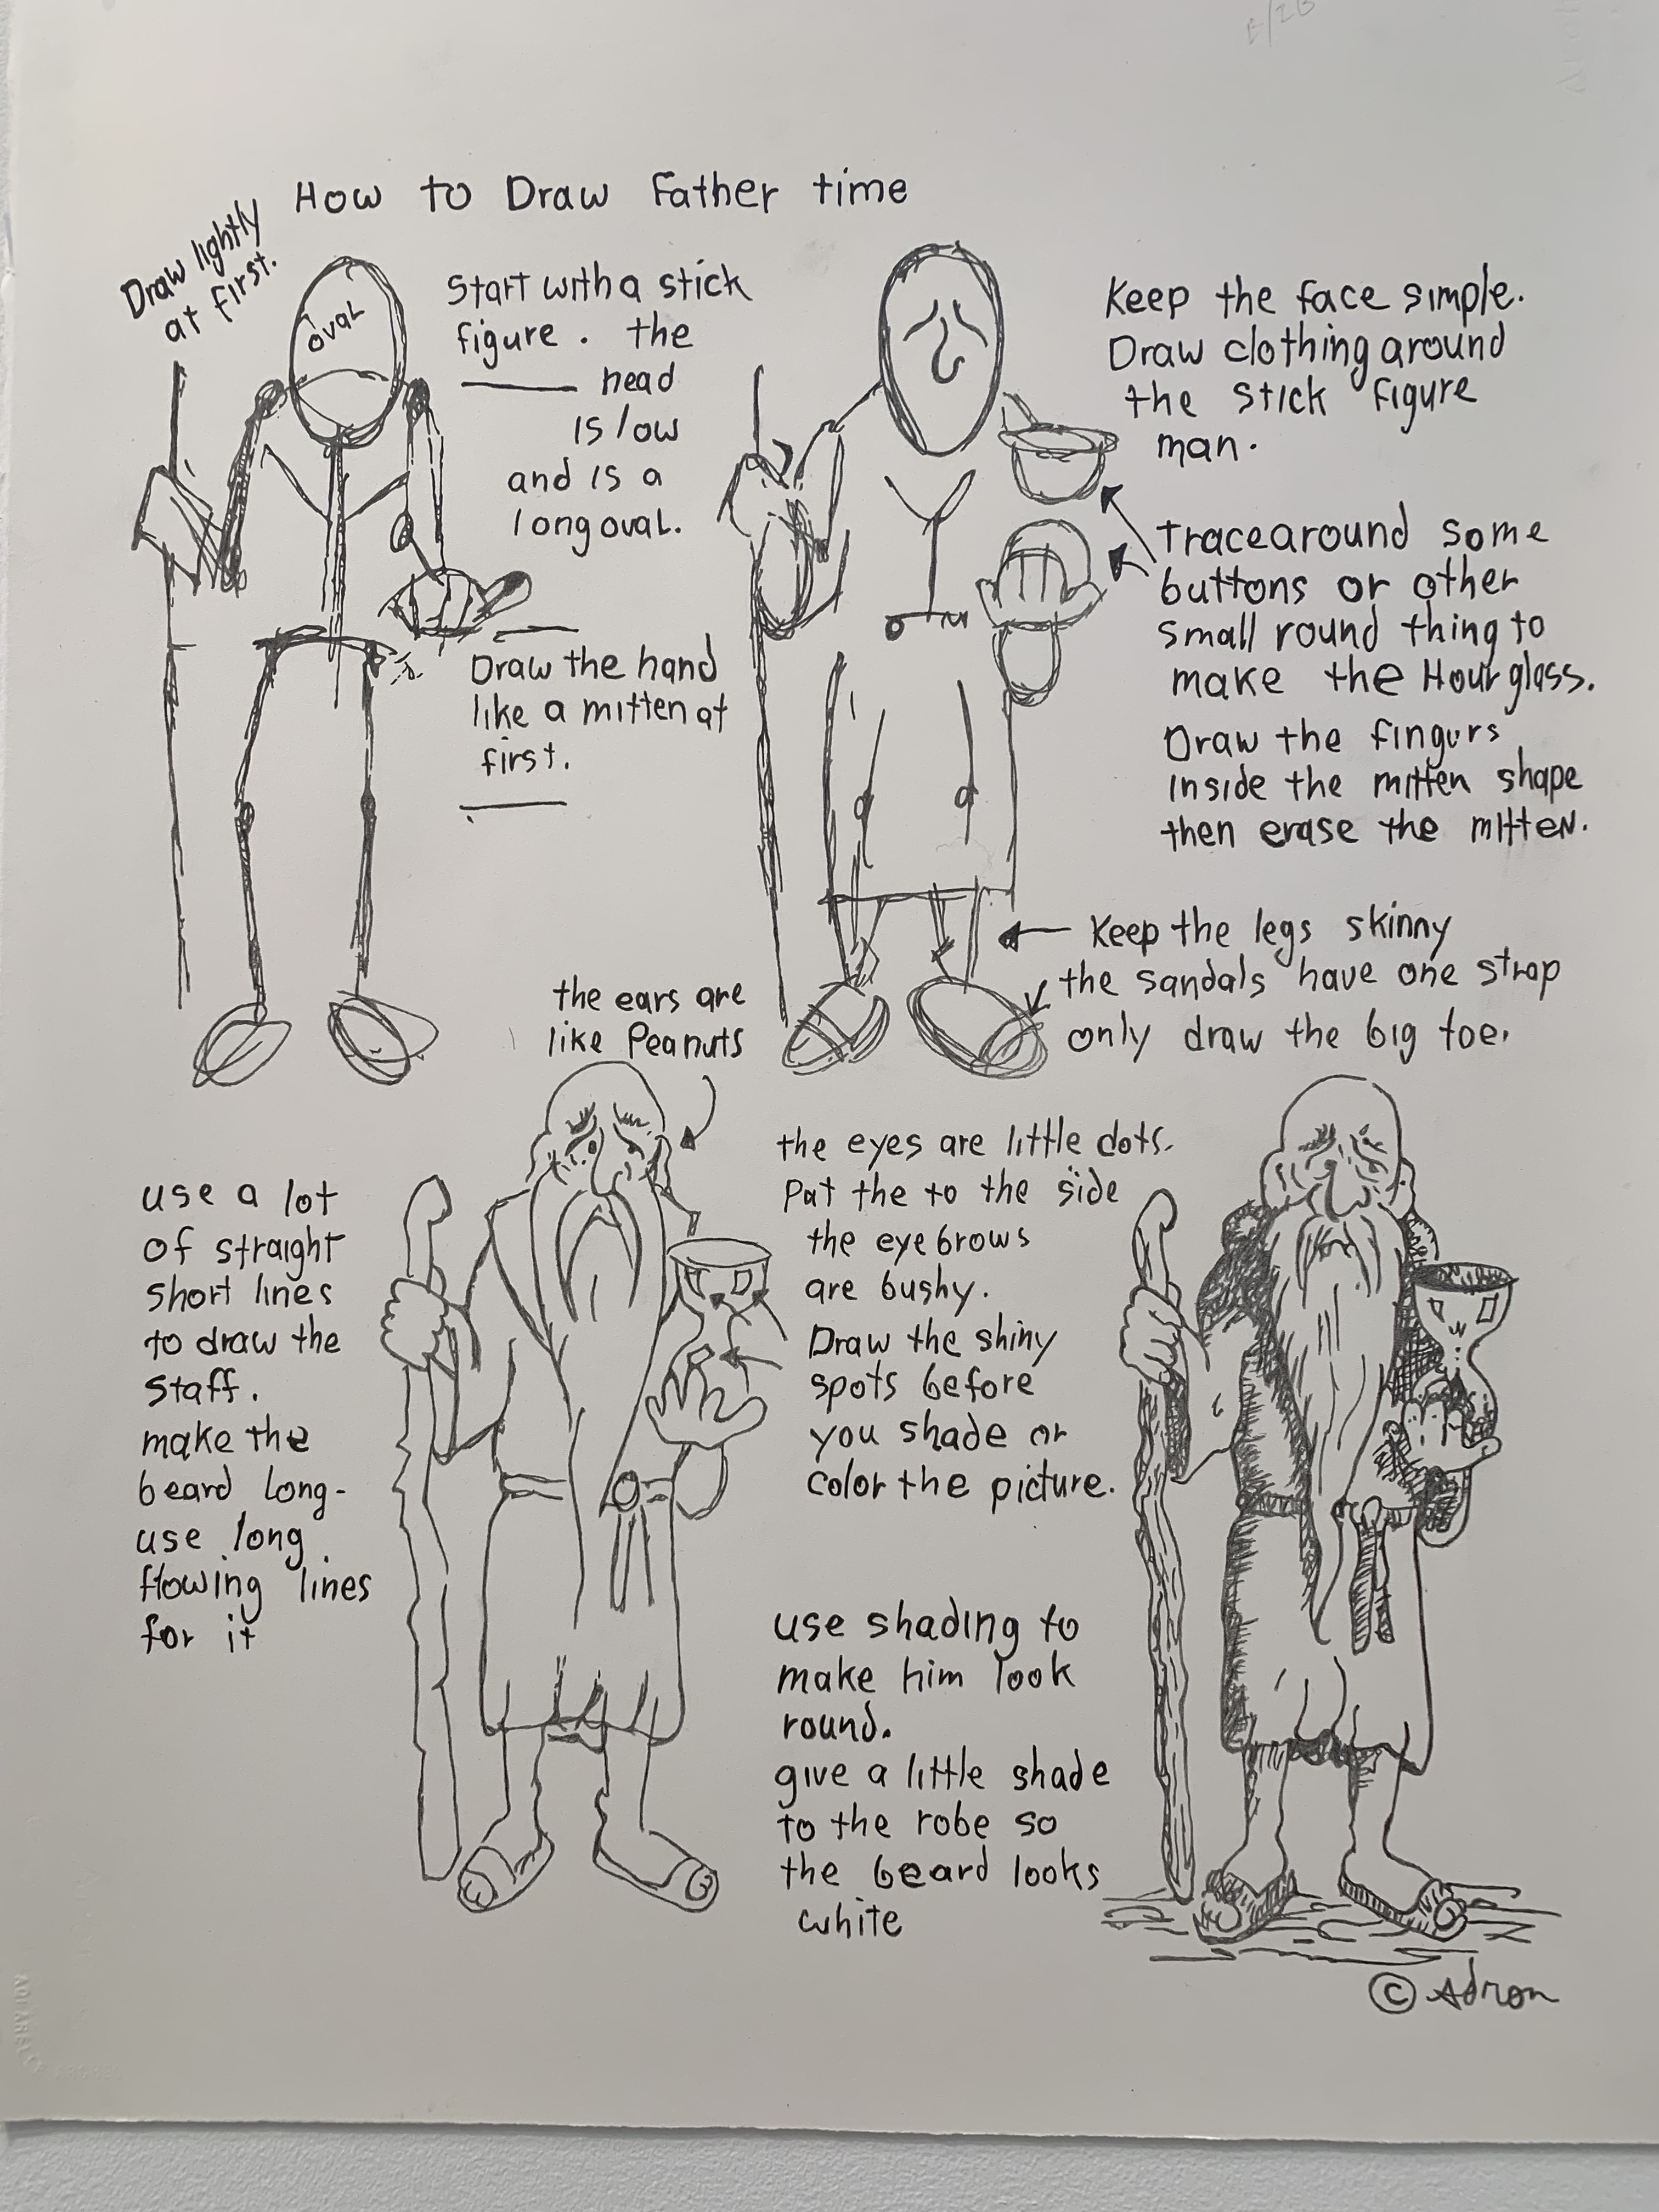 How to Draw Father time
Draw lightly
at first.
oval
Start with a stick
figure. the
head
is low
and is a
long oval.
Draw the hand
like a mitten at
first.
Keep the face simple.
Draw clothing around
the stick figure
man.
trace around some
buttons or other
small round thing to
make the Hour glass.
Draw the fingurs
inside the mitten shape
then erase the mitten.
Keep the legs skinny
the sandals have one strap
only draw the big toe.
the ears are
like Peanuts
use a lot
of straight
short lines
to draw the
staff.
make the
beard long-
use long
flowing lines
for it
the eyes are little dots.
Pat the to the side
the eyebrows
are bushy.
Draw the shiny
spots before
you shade or
color the picture.
use shading to
make him look
round.
give a little shade
to the robe so
the beard looks
white
© Adron